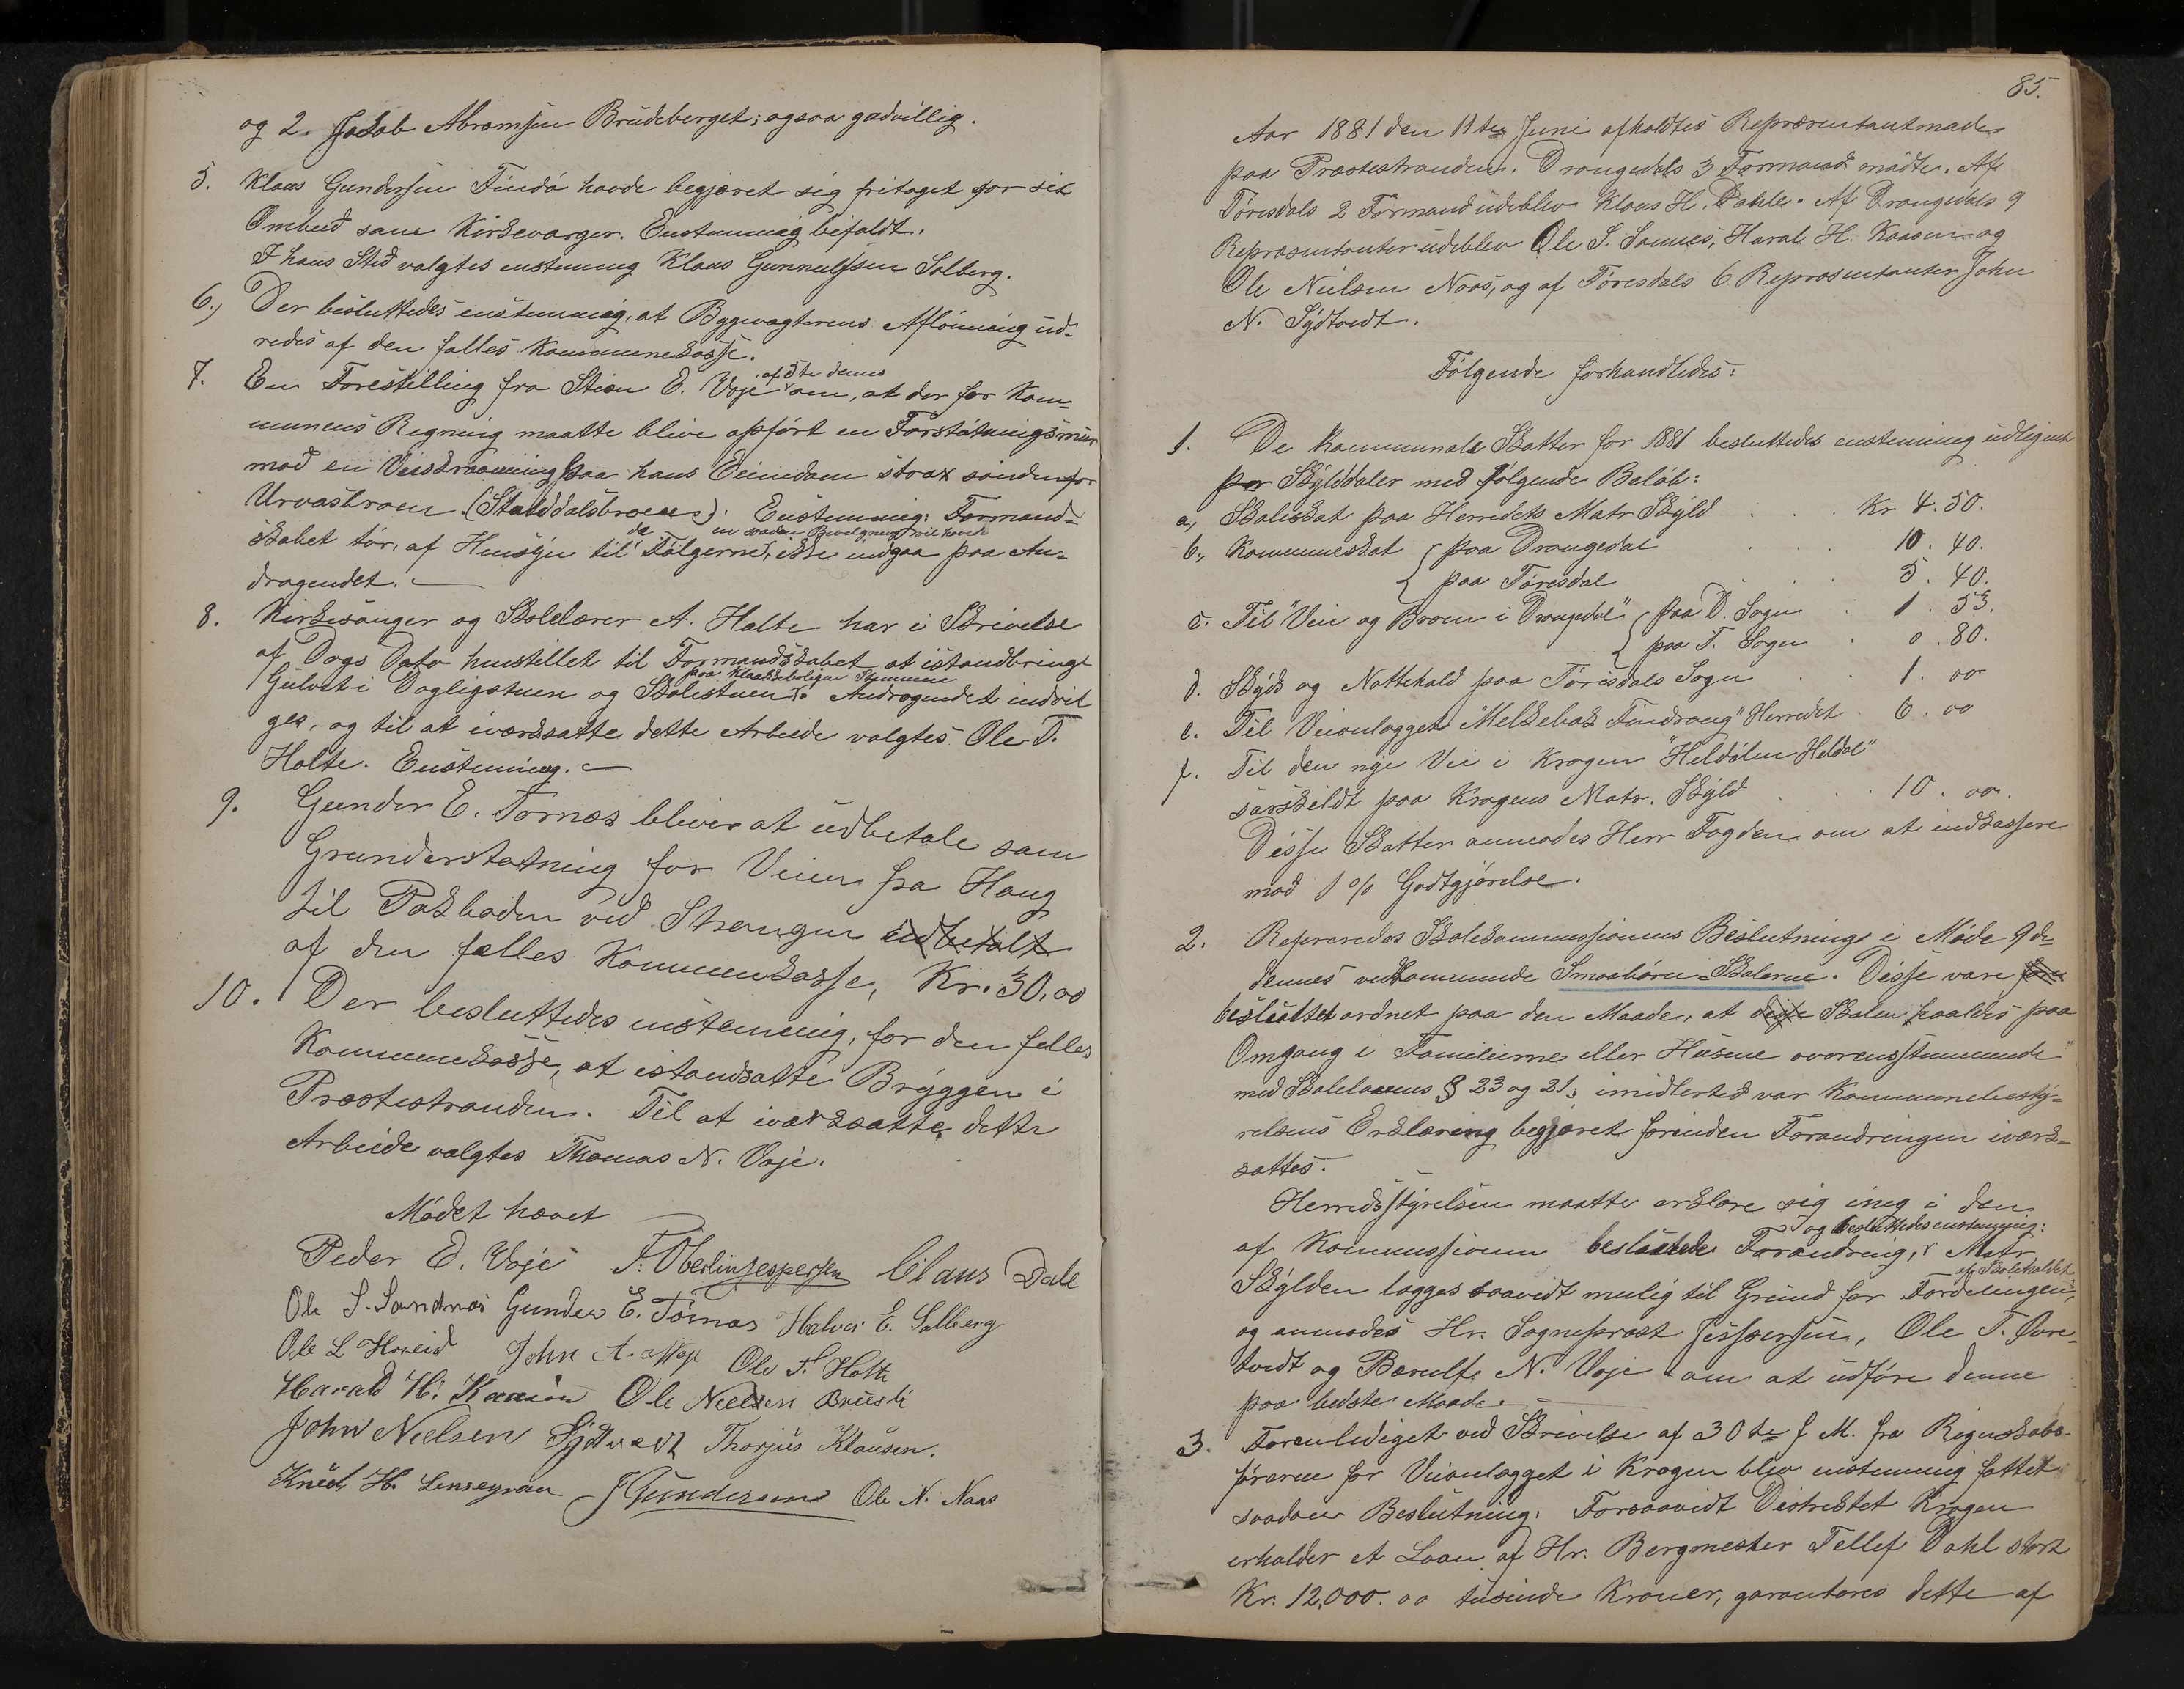 og 2. Jakob Abramsen Brudeberget; ogsaa godvillig.
5. Klaus Gundersen Findö havde begjæret sig fritaget for sit
Ombud som Kirkeværger. Enstemmig bifaldt.
I hans Sted valgtes enstemmig Klaus Gunnulfsen Solberg.
6.) Der besluttedes enstemmig, at Bygvogterens Aflönning ud-
redes af den fælles Kommunekasse.
7. En Forestilling fra Stian E. Voje af 5te dennes om, at der for Kom-
munens Regning maatte blive opfört en Forstötningsmur
mod en Veiskraaning paa hans Eiendom strax söndenfor
Urvasbroen (Stulddalsbroen). Enstemmig: Formand-
skabet tör, af Hensyn til de Fölgerne, en saadan Bevilgning vil have ikke indgaa paa An-
dragendet.
8. Kirkesanger og Skolelærer A. Holte har i Skrivelse
af Dags Dato henstillet til Formandskabet at istandbringe
Gulvet i Dagligstuen og Skolestuen paa Klokkeboligen Andragendet indvil
ges, og til at iværksætte dette Arbeide valgtes Ole T.
Holte. Enstemmig.
9. Gunder E. Tornæs bliver at udbetale som
Grunderstatning for Veien fra Haug
til Pakboden ved Strengen udbetalt
af den fælles Kommunekasse, Kr. 30,00
10. Der besluttedes enstemmig, for den fælles
Kommunekasse, at istandsætte Bryggen i
Præstestranden. Til at iværksætte dette
Arbeide valgtes Thomas N. Voje.
Mödet hævet
Peder E. Voje F. Oberlin Jespersen Claus Dale
Ole S. Sandnæs Gunder E. Törnæs Halvor E. Solberg
Ole L Hoseid John A. Voje Ole T. Holte
Harald H. Kaasen Ole Nielsen Bruesli
John Nielsen Sydtvedt Thorjus Klausen.
Knud H. J Gundersen Ole N. Naas
85.
Aar 1881 den 11te Juni afholdtes Repræsentantmöde
paa Præstestranden. Drangedals 3 Formænd mödte. Af
Törisdals 2 Formænd udeblev Klaus H. Dahle. Af Drangedals 9
Repræsentanter udeblev Ole S. Sannes, Haral. H. Kaasen og
Ole Nielsen Naas, og af Törisdals 6 Repræsentanter John
N. Sydtvedt.
Fölgende forhandledes:
1. De kommunale Skatter for 1881 besluttedes enstemmig udlignet
per Skylddaler med fölgende Belöb:
a, Skoleskat paa Herredets Matr Skyld . . . Kr 4. 50.
b, Kommuneskat { paa Drangedal . . . 10. 40.
{ paa Törisdal . . . 5. 40.
c. Til "Vei og Broen i Drangedal" { paa D. Sogn . 1. 53.
{ paa T. Sogn . 0. 80.
d. Skyds og Nattehold paa Törisdals Sogn . . 1. 00
e. Til Veianlægget "Melkebæk Findrang" Herredet . 6. 00
f. Til den nye Vei i Krogen "Heldölen Heldal"
særskildt paa Krogens Matr. Skyld . . . 10. 00.
Disse Skatter anmodes Herr Fogden om at indkassere
mod 1% Godtgjörelse.
2. Refereredes Skolekommissionens Beslutning i Möde 9de
dennes vedkommende Smaabörn-Skolerne. Disse vare
besluttet ordnet paa den Maade, at disse Skolen holdes paa
Omgang i Familierne eller Husene overensstemmende
med Skolelovens § 23 og 21; imidlertid var Kommunebesty-
relsens Erklæring begjæret forinden Forandringen iværk-
sættes.
Herredsstyrelsen maatte erklære sig enig i den
af Kommissionen besluttede Forandring, og besluttedes enstemmig: Matr
Skylden lægges saavidt mulig til Grund for Fordelingen af Skoleholdet,
og anmodes Hr. Sogneprest Jespersen, Ole T. Övre-
tvedt og Bærulf N. Voje om at udföre denne
paa bedste Maade.
3. Foranlediget ved Skrivelse af 30te f M. fra Regnskabs-
föreren for Veianlægget i Krogen blev enstemmig fattet
saadan Beslutning: Forsaavidt Distriktet Krogen
erholder et Laan af Hr. Bergmester Tellef Dahl stort
Kr. 12,000. 00 tusinde Kroner, garanteres dette af